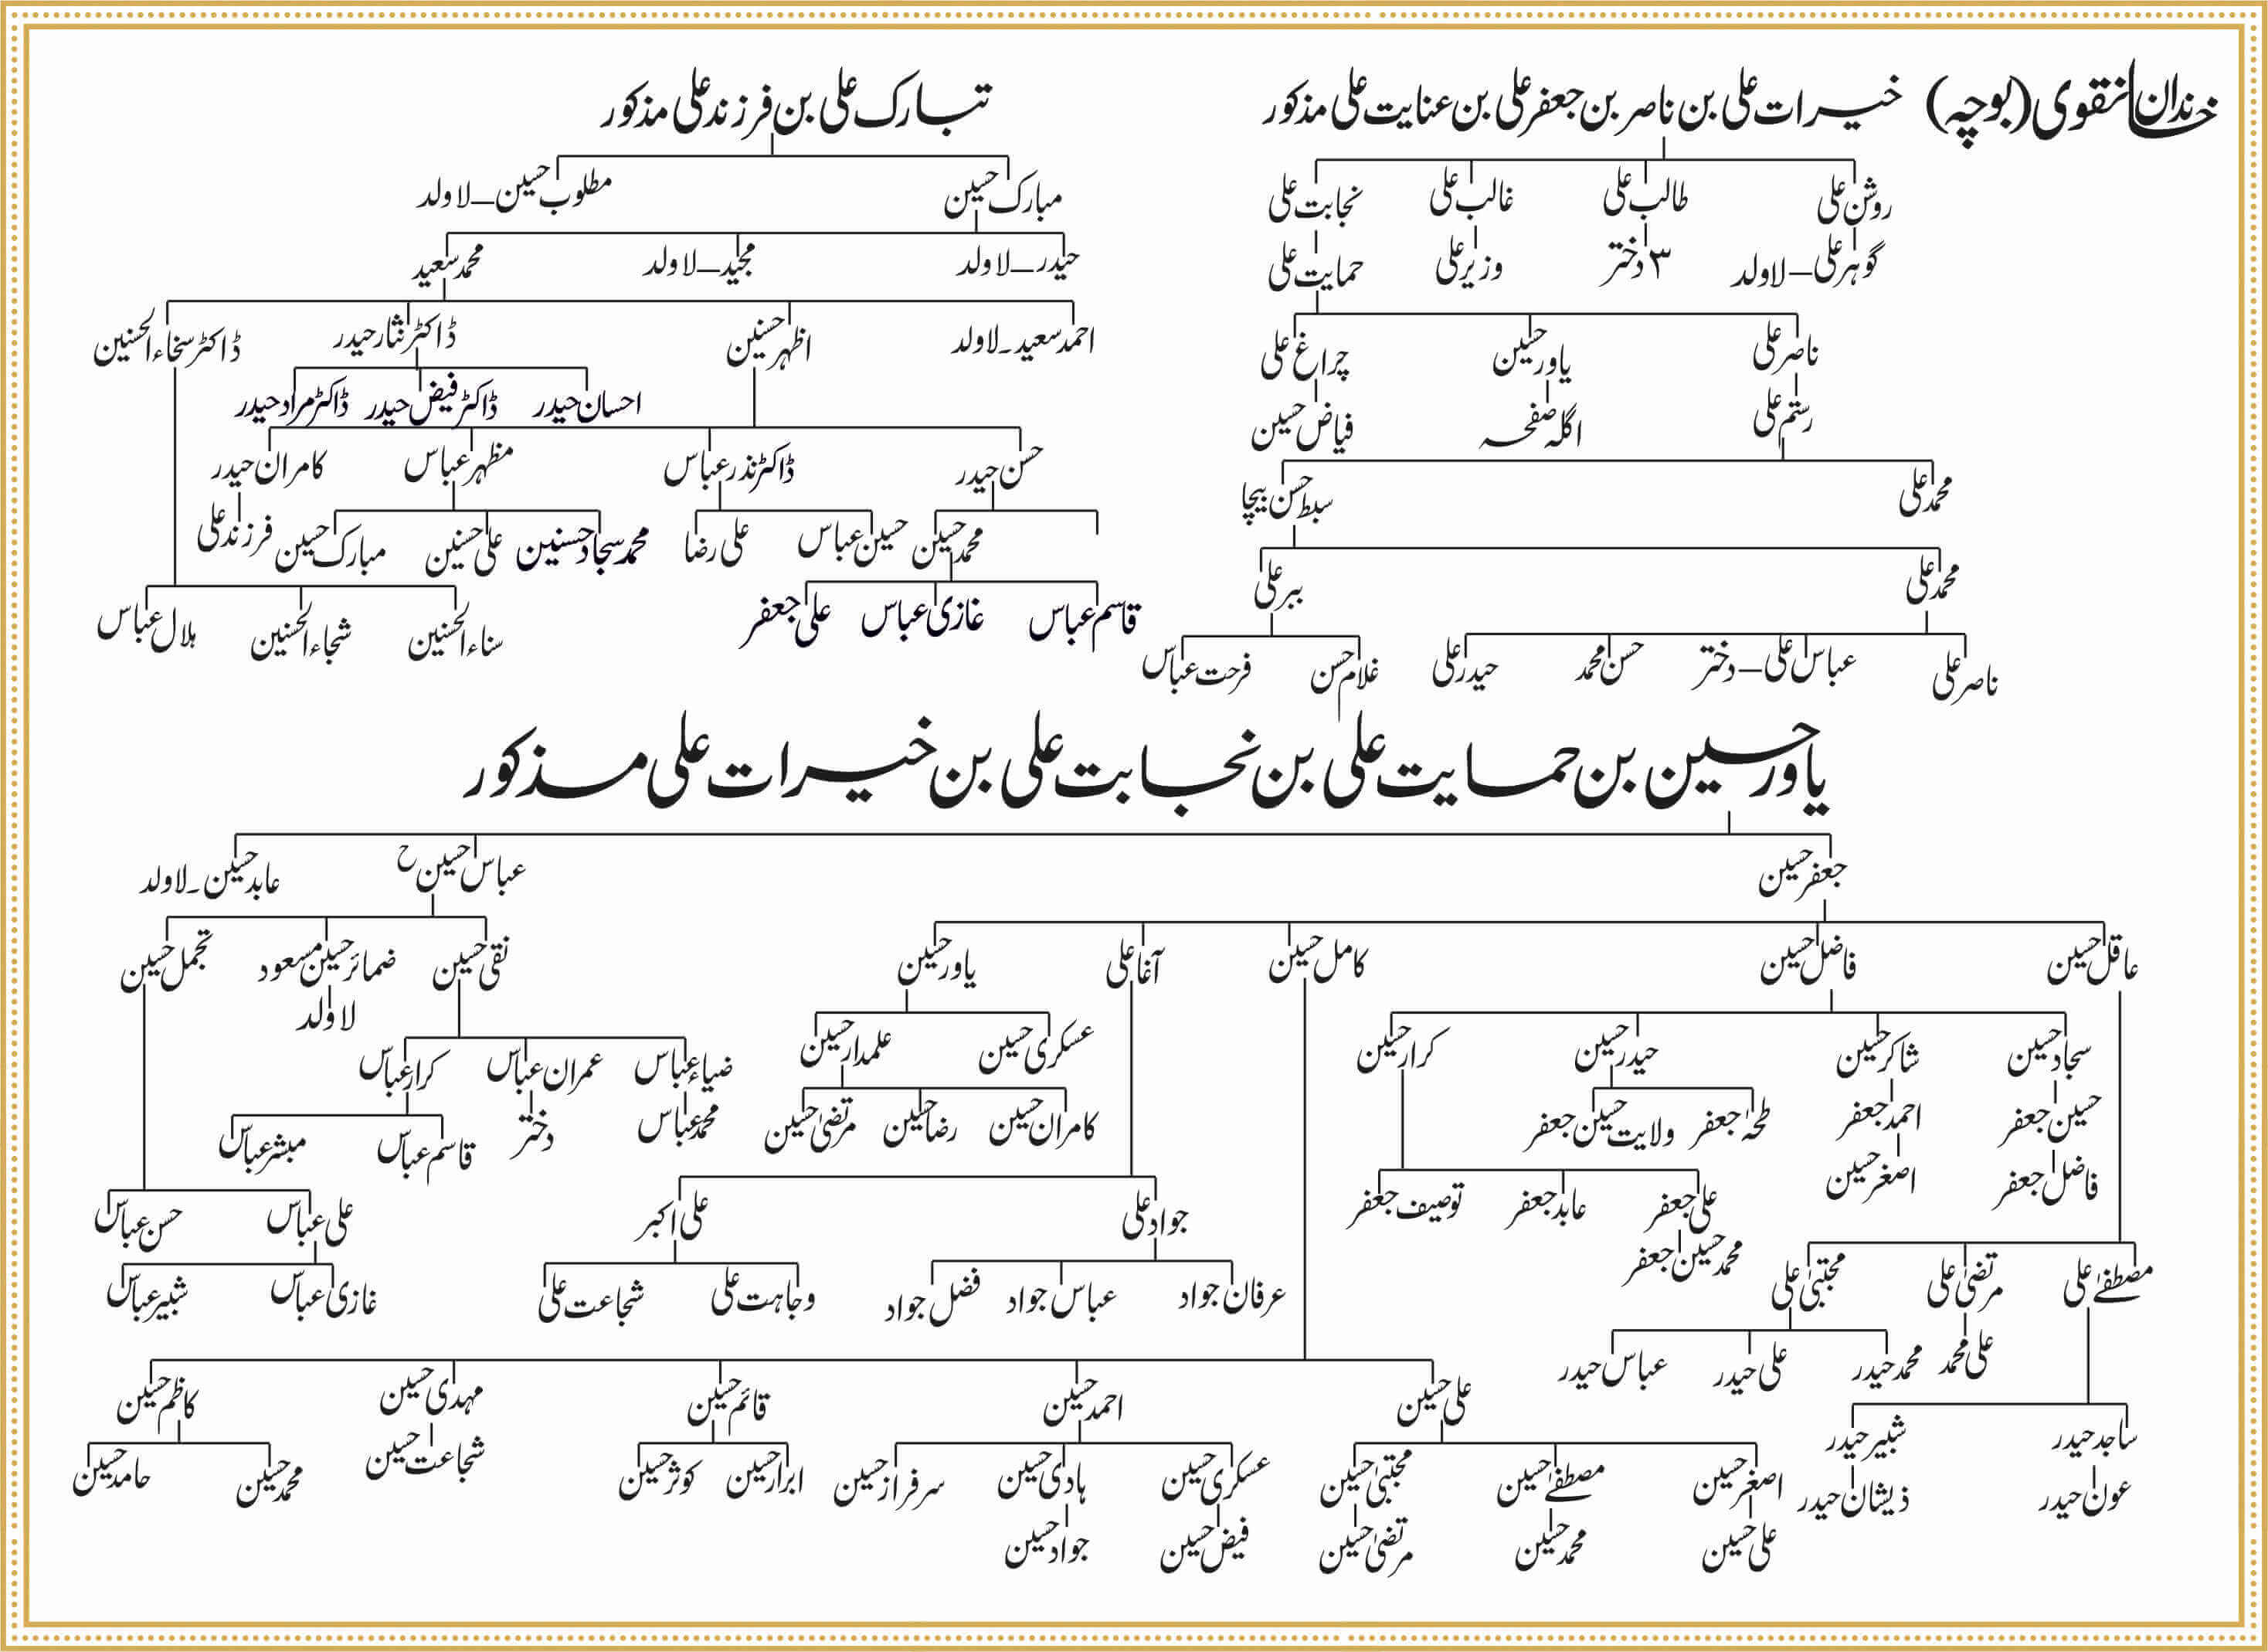 خاندان نقوی (بوچہ) خیرات علی بن ناصر بن جعفر علی بن عنایت علی مذکور
روشن علی طالب علی غالب علی نجابت علی
گوہر علی – لاولد ۳ دختر وزیر علی حمایت علی
ناصر علی یاور حسین چراغ علی
رستم علی اگلہ صفحہ فیاض حسین
محمد علی سبط حسن بیچا
محمد علی ببر علی
ناصر علی عباس علی – دختر حسن محمد حیدر علی غلام حسن فرحت عباس
تبارک علی بن فرزند علی مذکور
مبارک حسین مطلوب حسین – لاولد
حیدر – لاولد مجید – لاولد محمد سعید
احمد سعید۔لاولد اظہر حسنین ڈاکٹر نثار حیدر ڈاکٹر سخاء الحسنین
احسان حیدر ڈاکٹر فیض حیدر ڈاکٹر مراد حیدر
حسن حیدر ڈاکٹر نذر عباس مظہر عباس کامران حیدر
محمد حسین حسین عباس علی رضا محمد سجاد حسنین علی حسنین مبارک حسین فرزند علی
قاسم عباس غازی عباس علی جعفر سناء الحسنین شجاء الحسنین ہلال عباس
یاور حسین بن حمایت علی بن نجابت علی بن خیرات علی مذکور
جعفر حسین عباس حسین ح عابد حسین۔لاولد
عاقل حسین فاضل حسین کامل حسین آغا علی یاور حسین نقی حسین ضمائر حسین مسعود تجمل حسین
لاولد
سجاد حسین شاکر حسین حیدر حسین کرار حسین عسکری حسین علمدار حسین ضیاء عباس عمران عباس کرار عباس
حسین جعفر احمد جعفر طحہٰ جعفر ولایت حسین جعفر کامران حسین رضا حسین مرتضیٰ حسین محمد عباس دختر قاسم عباس مبشر عباس
فاضل جعفر اصغر حسین علی جعفر عابد جعفر توصیف جعفر جواد علی علی اکبر علی عباس حسن عباس
محمد حسین جعفر
مصطفےٰ علی مرتضیٰ علی مجتبیٰ علی عرفان جواد عباس جواد فضل جواد وجاہت علی شجاعت علی غازی عباس شبیر عباس
علی محمد محمد حیدر علی حیدر عباس حیدر
علی حسین احمد حسین قائم حسین مہدی حسین کاظم حسین
ساجد حیدر شبیر حیدر
اصغر حسین مصطفےٰ حسین مجتبیٰ حسین عسکری حسین ہادی حسین سرفراز حسین ابرار حسین کوثر حسین شجاعت حسین محمد حسین حامد حسین
عون حیدر ذیشان حیدر
علی حسین محمد حسین مرتضیٰ حسین فیض حسین جواد حسین